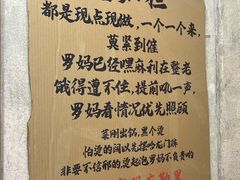 都是现点现做，一个一个来，
莫紧到催
罗妈已经黑麻利在整老
饿得遭不住，提前吼一声，
罗妈看情况优先照顾
菜刚出锅，黑个烫
怕烫的闷以先摆哈龙门阵
非要不信邪的烫起泡罗妈不负责的